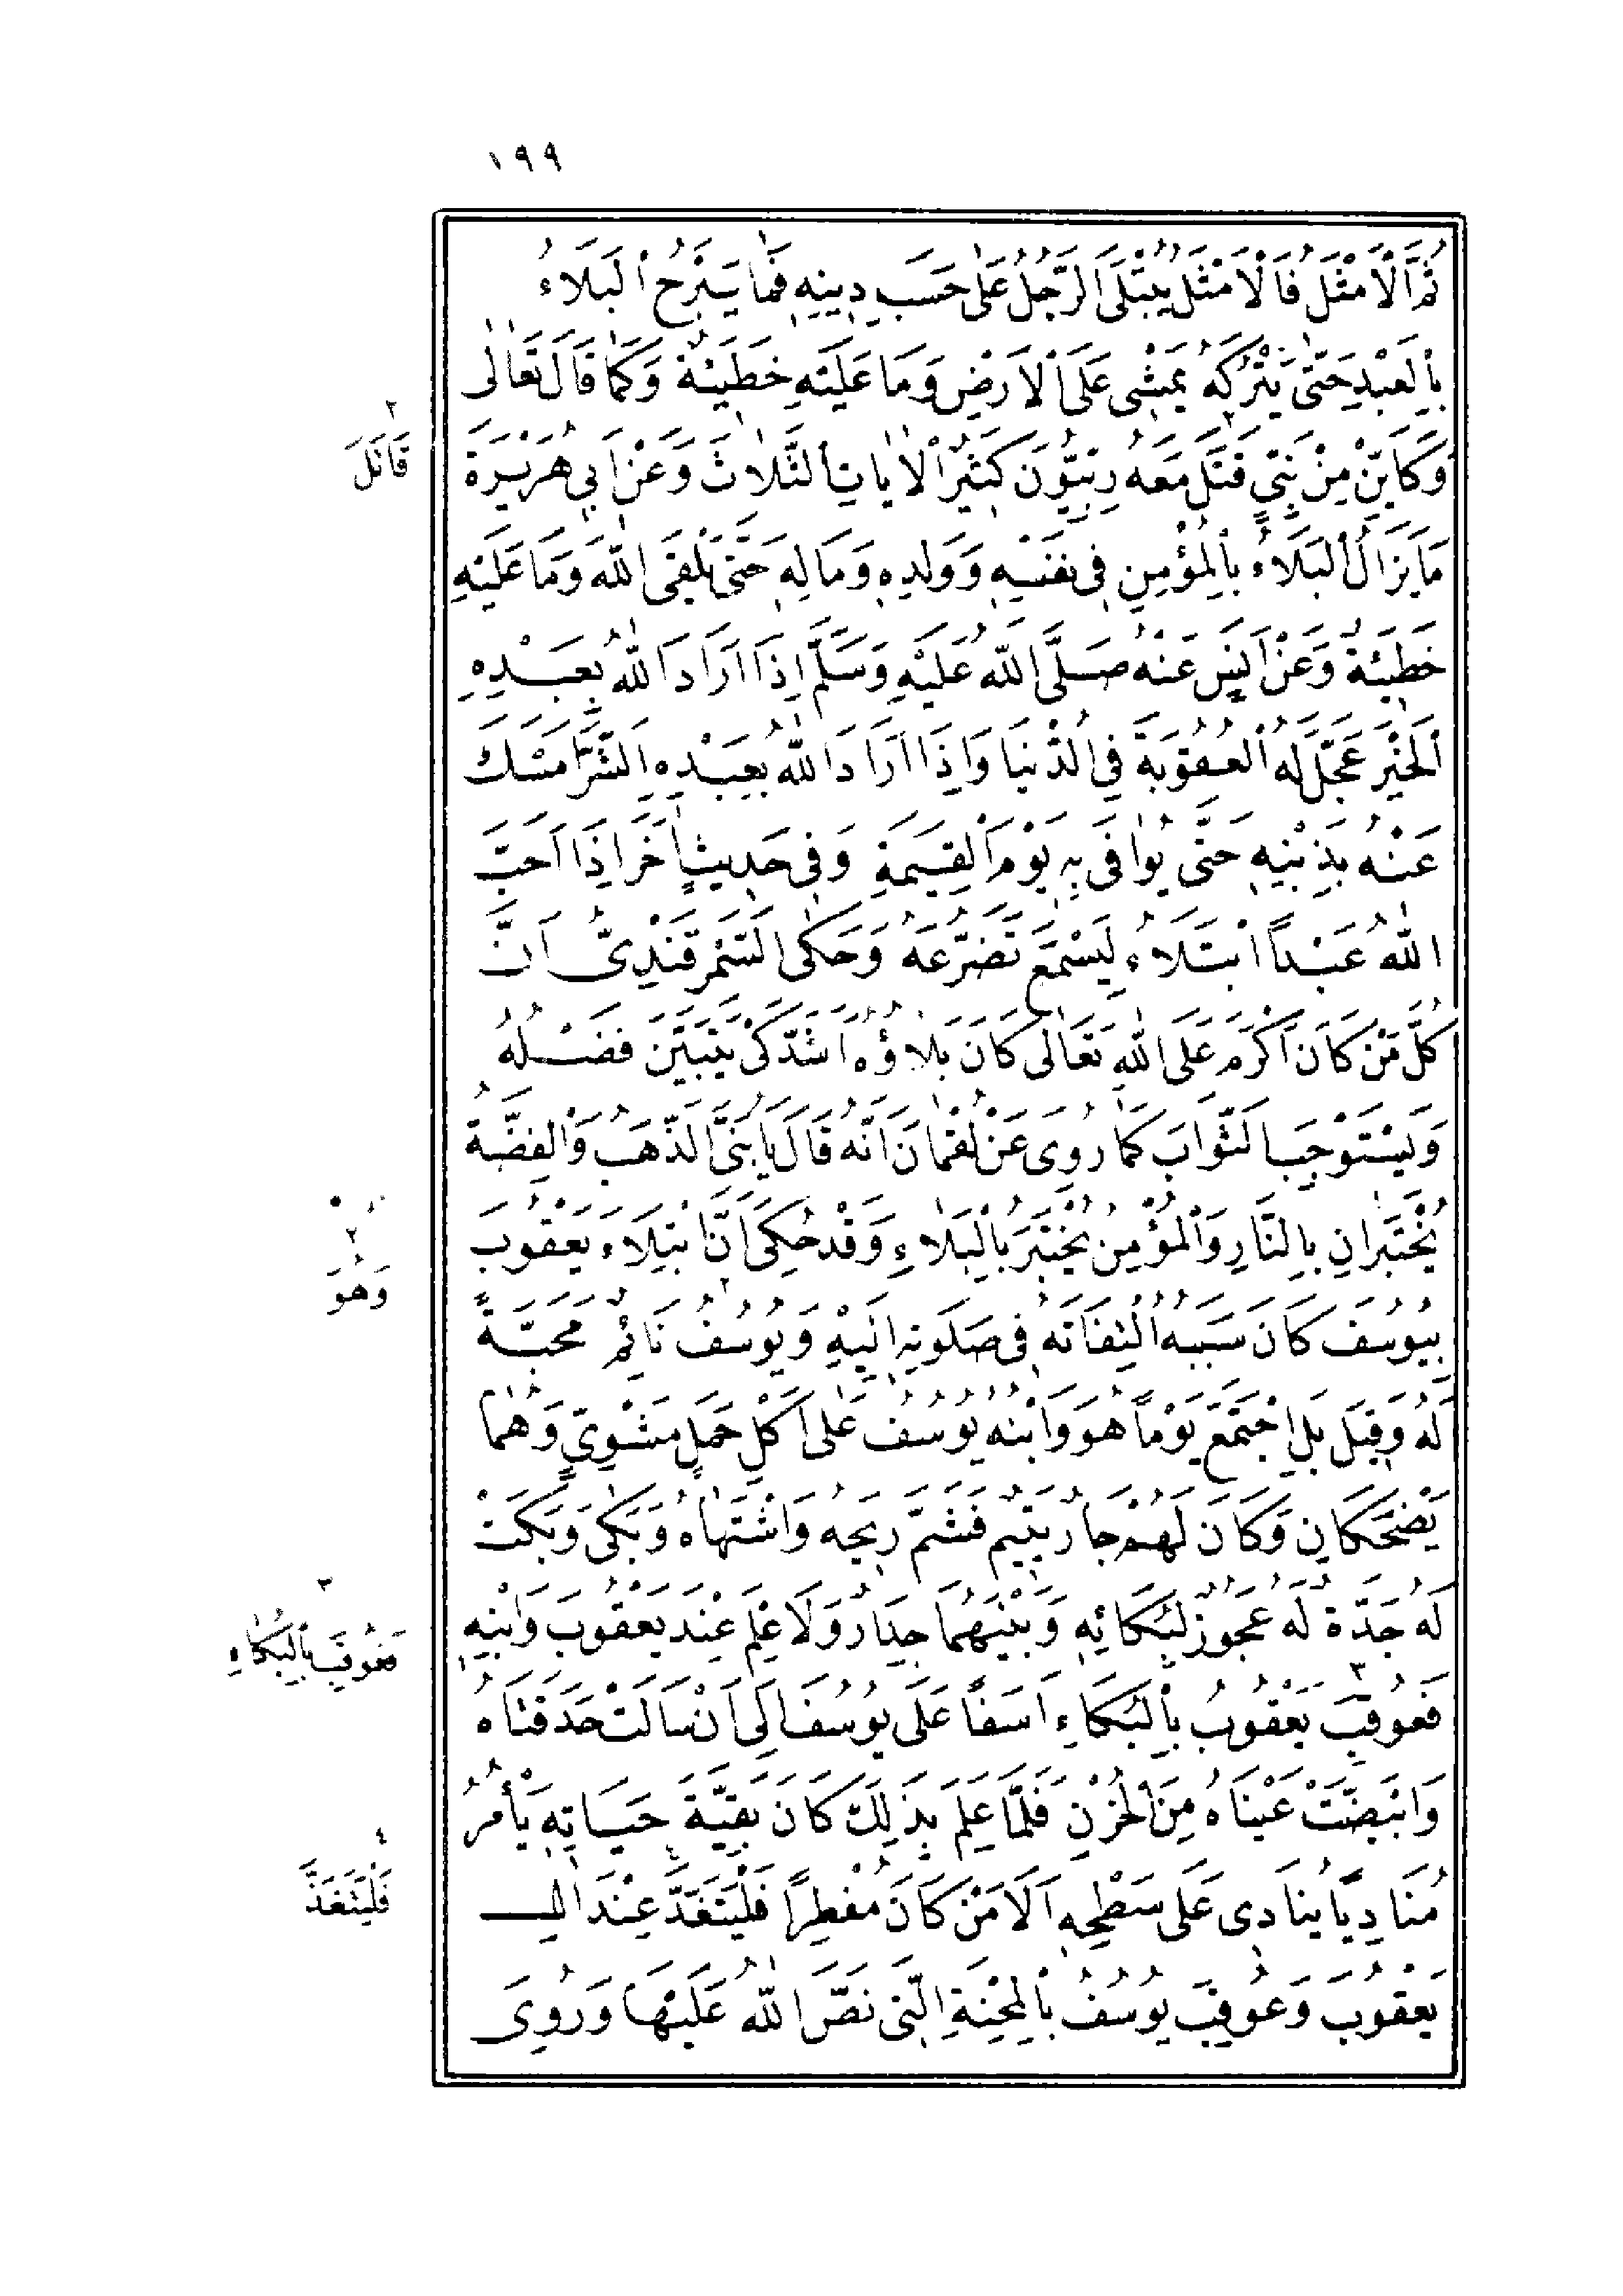 ١٩٩
ثُمَّ الْاَمْثَلُ فَالْاَمْثَلُ يُبْتَلَى الرَّجُلُ عَلٰى حَسَبِ دِينِهٖ فَمَا يَبْرَحُ الْبَلَاءُ
بِالْعَبْدِ حَتّٰى يَتْرُكَهُ يَمْشِى عَلَى الْاَرْضِ وَمَا عَلَيْهِ خَطِيئَةٌ وَكَمَا قَالَ تَعَالٰى
وَكَاَيِّنْ مِنْ نَبِىٍّ قُتِلَ مَعَهُ رِبِّيُّونَ كَثِيرٌ الْاٰيَاتِ الثَّلَاثَ وَعَنْ اَبِى هُرَيْرَةَ
٢ قَاتَلَ
مَا يَزَالُ الْبَلَاءُ بِالْمُؤْمِنِ فِى نَفْسِهٖ وَوَلَدِهٖ وَمَالِهٖ حَتّٰى يَلْقَى اللّٰهَ وَمَا عَلَيْهِ
خَطِيئَةٌ وَعَنْ اَنَسٍ عَنْهُ صَلَّى اللّٰهُ عَلَيْهِ وَسَلَّمَ اِذَا اَرَادَ اللّٰهُ بِعَبْدِهِ
الْخَيْرَ عَجَّلَ لَهُ الْعُقُوبَةَ فِى الدُّنْيَا وَاِذَا اَرَادَ اللّٰهُ بِعَبْدِهِ الشَّرَّ اَمْسَكَ
عَنْهُ بِذَنْبِهٖ حَتّٰى يُوَافٰى بِهٖ يَوْمَ الْقِيٰمَةِ وَفِى حَدِيثٍ اٰخَرَ اِذَا اَحَبَّ
اللّٰهُ عَبْدًا ابْتَلَاهُ لِيَسْمَعَ تَضَرُّعَهُ وَحَكَى السَّمَرْقَنْدِىُّ اَنَّ
كُلَّ مَنْ كَانَ اَكْرَمَ عَلَى اللّٰهِ تَعَالٰى كَانَ بَلَاؤُهُ اَشَدَّ كَىْ يَتَبَيَّنَ فَضْلُهُ
وَيَسْتَوْجِبَ الثَّوَابَ كَمَا رُوِىَ عَنْ لُقْمَانَ اَنَّهُ قَالَ يَا بُنَىَّ الذَّهَبُ وَالْفِضَّةُ
يُخْتَبَرَانِ بِالنَّارِ وَالْمُؤْمِنُ يُخْتَبَرُ بِالْبَلَاءِ وَقَدْ حُكِىَ اَنَّ ابْتِلَاءَ يَعْقُوبَ
٢ وَهُوَ
بِيُوسُفَ كَانَ سَبَبُهُ الْتِفَاتَهُ فِى صَلٰوتِهٖ اِلَيْهِ وَيُوسُفُ نَائِمٌ مَحَبَّةً
لَهُ وَقِيلَ بَلِ اجْتَمَعَ يَوْمًا هُوَ وَابْنُهُ يُوسُفُ عَلٰى اَكْلِ حَمَلٍ مَشْوِىٍّ وَهُمَا
يَضْحَكَانِ وَكَانَ لَهُمْ جَارٌ يَتِيمٌ فَشَمَّ رِيحَهُ وَاشْتَهَاهُ وَبَكٰى وَبَكَتْ
لَهُ جَدَّةٌ لَهُ عَجُوزٌ لِبُكَائِهٖ وَبَيْنَهُمَا جِدَارٌ وَلَا عِلْمَ عِنْدَ يَعْقُوبَ وَابْنِهٖ
٣ فَعُوقِبَ بِالْبُكَاءِ
فَعُوقِبَ ٣ يَعْقُوبُ بِالْبُكَاءِ اَسَفًا عَلَى يُوسُفَ اِلَى اَنْ سَالَتْ حَدَقَتَاهُ
وَابْيَضَّتْ عَيْنَاهُ مِنَ الْحُزْنِ فَلَمَّا عَلِمَ بِذٰلِكَ كَانَ بَقِيَّةَ حَيَاتِهٖ يَأْمُرُ
مُنَادِيًا يُنَادِى عَلَى سَطْحِهٖ اَلَا مَنْ كَانَ مُفْطِرًا فَلْيَتَغَدَّ ٤ عِنْدَ اٰلِ
٤ فَلْيَتَغَذَّ
يَعْقُوبَ وَعُوقِبَ يُوسُفُ بِالْمِحْنَةِ الَّتِى نَصَّ اللّٰهُ عَلَيْهَا وَرُوِىَ